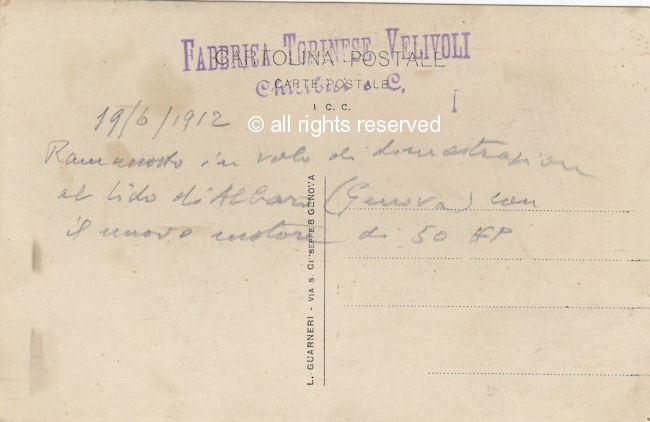 FABBRICA TORINESE VELIVOLI
CARTOLINA POSTALE
CARTE POSTALE
Chiribiri e C.
I C. C.
I
19/6/1912
© all rights reserved
in volo di dimostrazion
al Lido di Albaro (Genova) con
il nuovo motore di 50 HP
L. GUARNERI - VIA S. GIUSEPPE 8 GENOVA